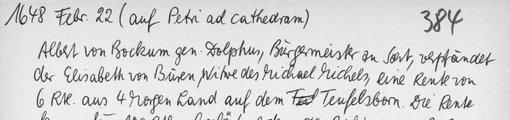 1648 Febr. 22 (auf Petri ad cathedram) 384
Albert von Bockum gen. Dolphus, Bürgermeister zu Soest, verpfändet
der Elisabeth von Büren, Witwe des Michael Michels, eine Rente von
6 Rtl. aus 4 Morgen Land auf dem Teufelsborn. Die Rente